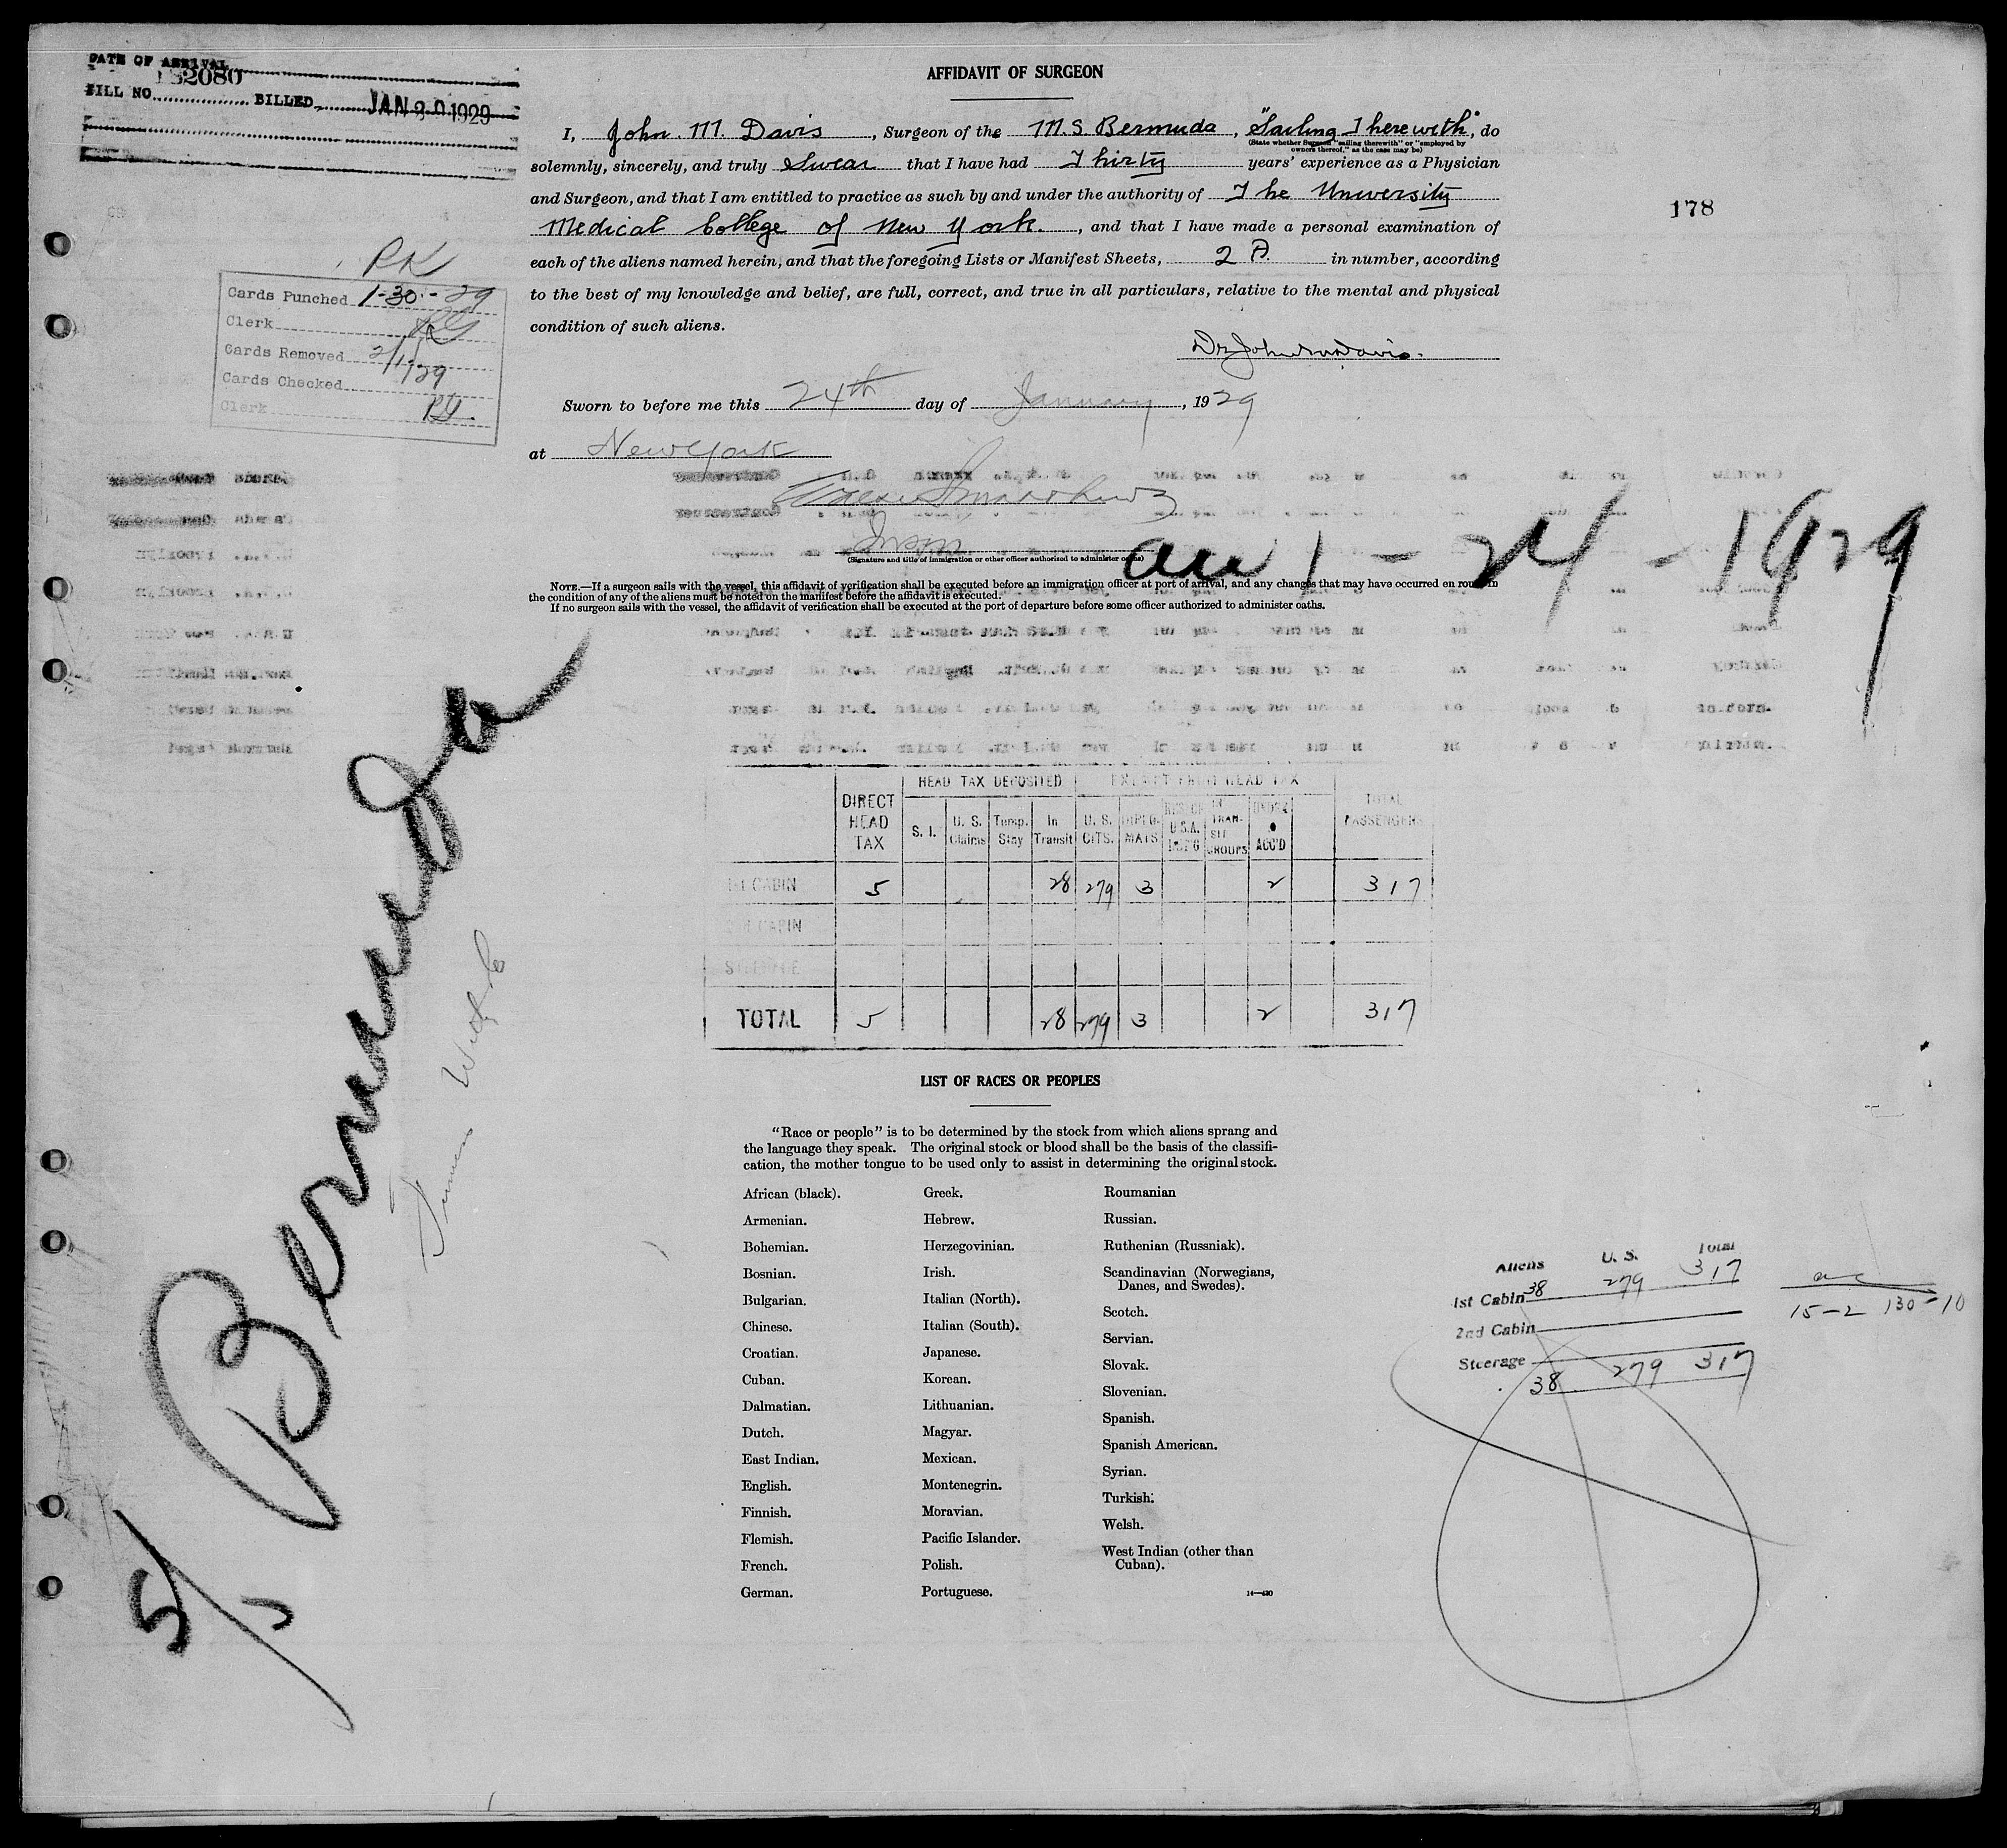 DATE OF ARRIVAL
182080
BILL NO. BILLED JAN 30 1929
AFFIDAVIT OF SURGEON
I, John M. Davis, Surgeon of the M.S Bermuda, "Sailing Therewith", do
(State whether Surgeon "sailing therewith" or "employed by
owners thereof," as the case may be)
solemnly, sincerely, and truly swear that I have had Thirty years' experience as a Physician
and Surgeon, and that I am entitled to practice as such by and under the authority of The University
Medical College of New York., and that I have made a personal examination of
each of the aliens named herein, and that the foregoing Lists or Manifest Sheets, 2 A. in number, according
to the best of my knowledge and belief, are full, correct, and true in all particulars, relative to the mental and physical
condition of such aliens.
178
RK
Cards Punched 1-30-29
Clerk
Cards Removed 2/1/29
Cards Checked
Clerk
Sworn to before me this 24th day of January, 1929
at New York
(Signature and title of immigration or other officer authorized to administer oaths)
arr 1-24-1929
NOTE.—If a surgeon sails with the vessel, this affidavit of verification shall be executed before an immigration officer at port of arrival, and any changes that may have occurred en route in
the condition of any of the aliens must be noted on the manifest before the affidavit is executed.
If no surgeon sails with the vessel, the affidavit of verification shall be executed at the port of departure before some officer authorized to administer oaths.
S/S Bermuda
HEAD TAX DEPOSITED EXEMPT FROM HEAD TAX
DIRECT HEAD TAX S. I. U. S. Claims Temp. Stay In Transit U. S. CITS. DIPLO-MATS IN TRAN-SIT GROUPS ACC'D TOTAL PASSENGERS
1st CABIN 5 28 279 3 2 317
2nd CABIN
STEERAGE
TOTAL 5 28 279 3 2 317
LIST OF RACES OR PEOPLES
"Race or people" is to be determined by the stock from which aliens sprang and
the language they speak. The original stock or blood shall be the basis of the classifi-
cation, the mother tongue to be used only to assist in determining the original stock.
African (black).
Armenian.
Bohemian.
Bosnian.
Bulgarian.
Chinese.
Croatian.
Cuban.
Dalmatian.
Dutch.
East Indian.
English.
Finnish.
Flemish.
French.
German.
Greek.
Hebrew.
Herzegovinian.
Irish.
Italian (North).
Italian (South).
Japanese.
Korean.
Lithuanian.
Magyar.
Mexican.
Montenegrin.
Moravian.
Pacific Islander.
Polish.
Portuguese.
Roumanian
Russian.
Ruthenian (Russniak).
Scandinavian (Norwegians,
Danes, and Swedes).
Scotch.
Servian.
Slovak.
Slovenian.
Spanish.
Spanish American.
Syrian.
Turkish.
Welsh.
West Indian (other than
Cuban).
Aliens U. S. Total
1st Cabin 38 279 317
2nd Cabin
Steerage
38 279 317
15-2 130-10